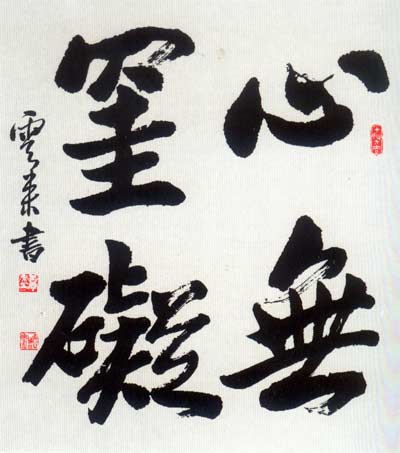 心無
罣礙
雲来書